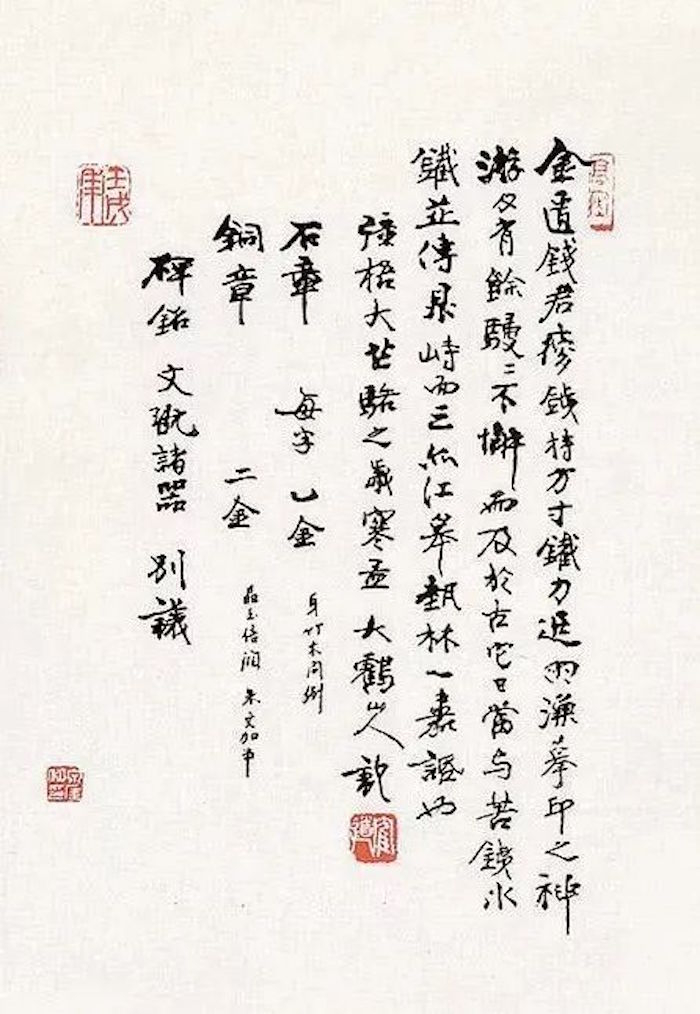 金匱錢君瘦銕持方寸鐵力追兩漢摹印之神
游刃有餘駸〻不懈而及於古它日當与苦銕冰
鐵並傳鼎峙而三亦江皋埶林一嘉話也
彊梧大芒駱之歲寒孟 大鶴山人記
石章 每字 乙金 牙竹木同例
銅章 二金 晶玉倍潤 朱文加半
碑銘 文瓻諸器 別議